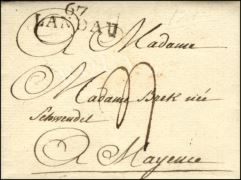 67
LANDAU
A Madame
Madame Bock née
Schwendel
A Mayence